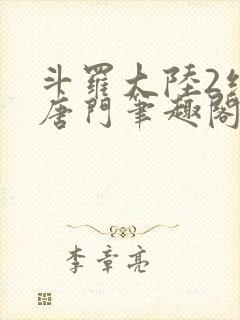 斗羅大陸2絕
唐門筆趣閣
李章亮